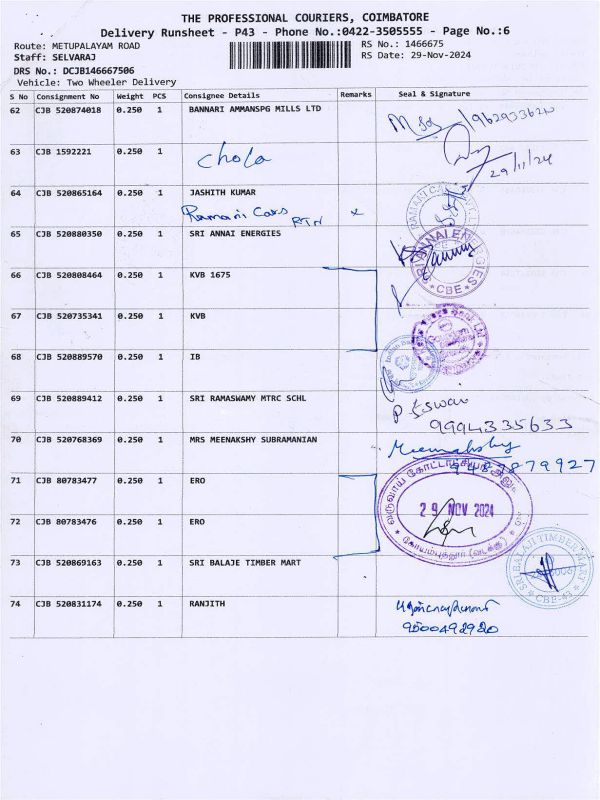 THE PROFESSIONAL COURIERS, COIMBATORE
Delivery Runsheet - P43 - Phone No.:0422-3505555 - Page No.:6
Route: METUPALAYAM ROAD RS No.: 1466675
Staff: SELVARAJ RS Date: 29-Nov-2024
DRS No.: DCJB146667506
Vehicle: Two Wheeler Delivery
S No Consignment No Weight PCS Consignee Details Remarks Seal & Signature
62 CJB 520874018 0.250 1 BANNARI AMMANSPG MILLS LTD
63 CJB 1592221 0.250 1 Chola
29/11/24
64 CJB 520865164 0.250 1 JASHITH KUMAR
Ramani Cars RTN x
65 CJB 520880350 0.250 1 SRI ANNAI ENERGIES
SRI ANNAI ENERGIES CBE
66 CJB 520808464 0.250 1 KVB 1675
67 CJB 520735341 0.250 1 KVB
68 CJB 520889570 0.250 1 IB
69 CJB 520889412 0.250 1 SRI RAMASWAMY MTRC SCHL
P Eswari
9994335633
70 CJB 520768369 0.250 1 MRS MEENAKSHY SUBRAMANIAN Meenakshy
9489879927
71 CJB 80783477 0.250 1 ERO
29 NOV 2024
72 CJB 80783476 0.250 1 ERO
கோயம்புத்தூர் (வடக்கு)
73 CJB 520869163 0.250 1 SRI BALAJE TIMBER MART
SRI BALAJI TIMBER MART
CBE-43
74 CJB 520831174 0.250 1 RANJITH
9500492920